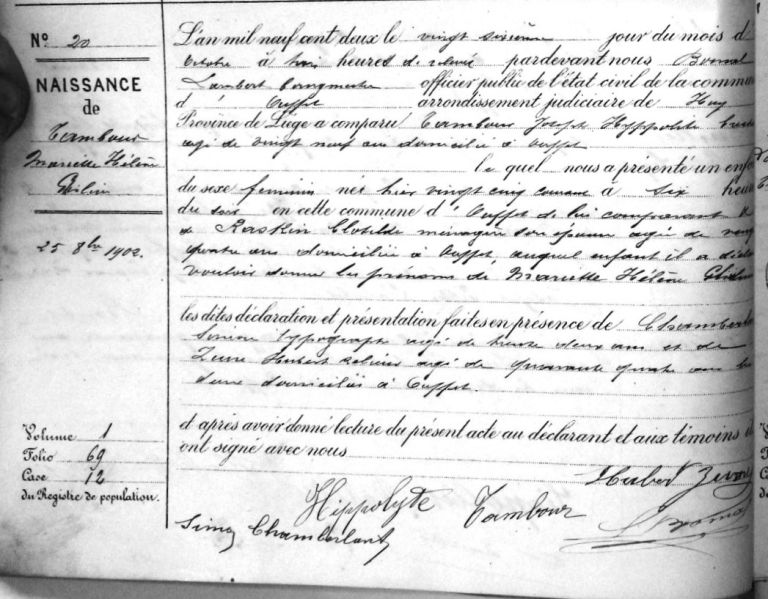 N° 20
NAISSANCE
de
Tambour
Mariette Hélène
Ghilin
25 8bre 1902.
Volume 1
Folio 69
Case 12
du Registre de population.
L'an mil neuf cent deux le vingt sixième jour du mois d
octobre à trois heures de relevée pardevant nous
Lambert bourgmestre officier public de l'état civil de la commu
d' Ouffet arrondissement judiciaire de Huy
Province de Liège a comparu Tambour Joseph Hyppolite
agé de vingt neuf ans domicilié à Ouffet
le quel nous a présenté un enfa
du sexe féminin née hier vingt cinq courant à six heu
du soir en cette commune d' Ouffet de lui comparant
de Raskin Clotilde ménagère son épouse agée de
quatre ans domiciliée à Ouffet, auquel enfant il a décla
vouloir donner les prénoms de Mariette Hélène
les dites déclaration et présentation faites en présence de Chamberla
Simon typographe agé de trente deux ans et de
Hubert relieur agé de quarante quatre ans
deux domiciliés à Ouffet.
et après avoir donné lecture du présent acte au déclarant et aux témoins
ont signé avec nous
Hubert
Hippolyte Tambour
Simon Chamberlant